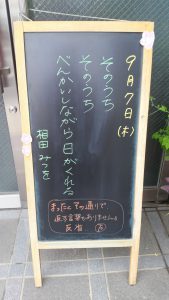 9月7日(木)
そのうち
そのうち
べんかいしながら日がくれる
相田みつを
まったくその通りで
返す言葉もありません。
反省